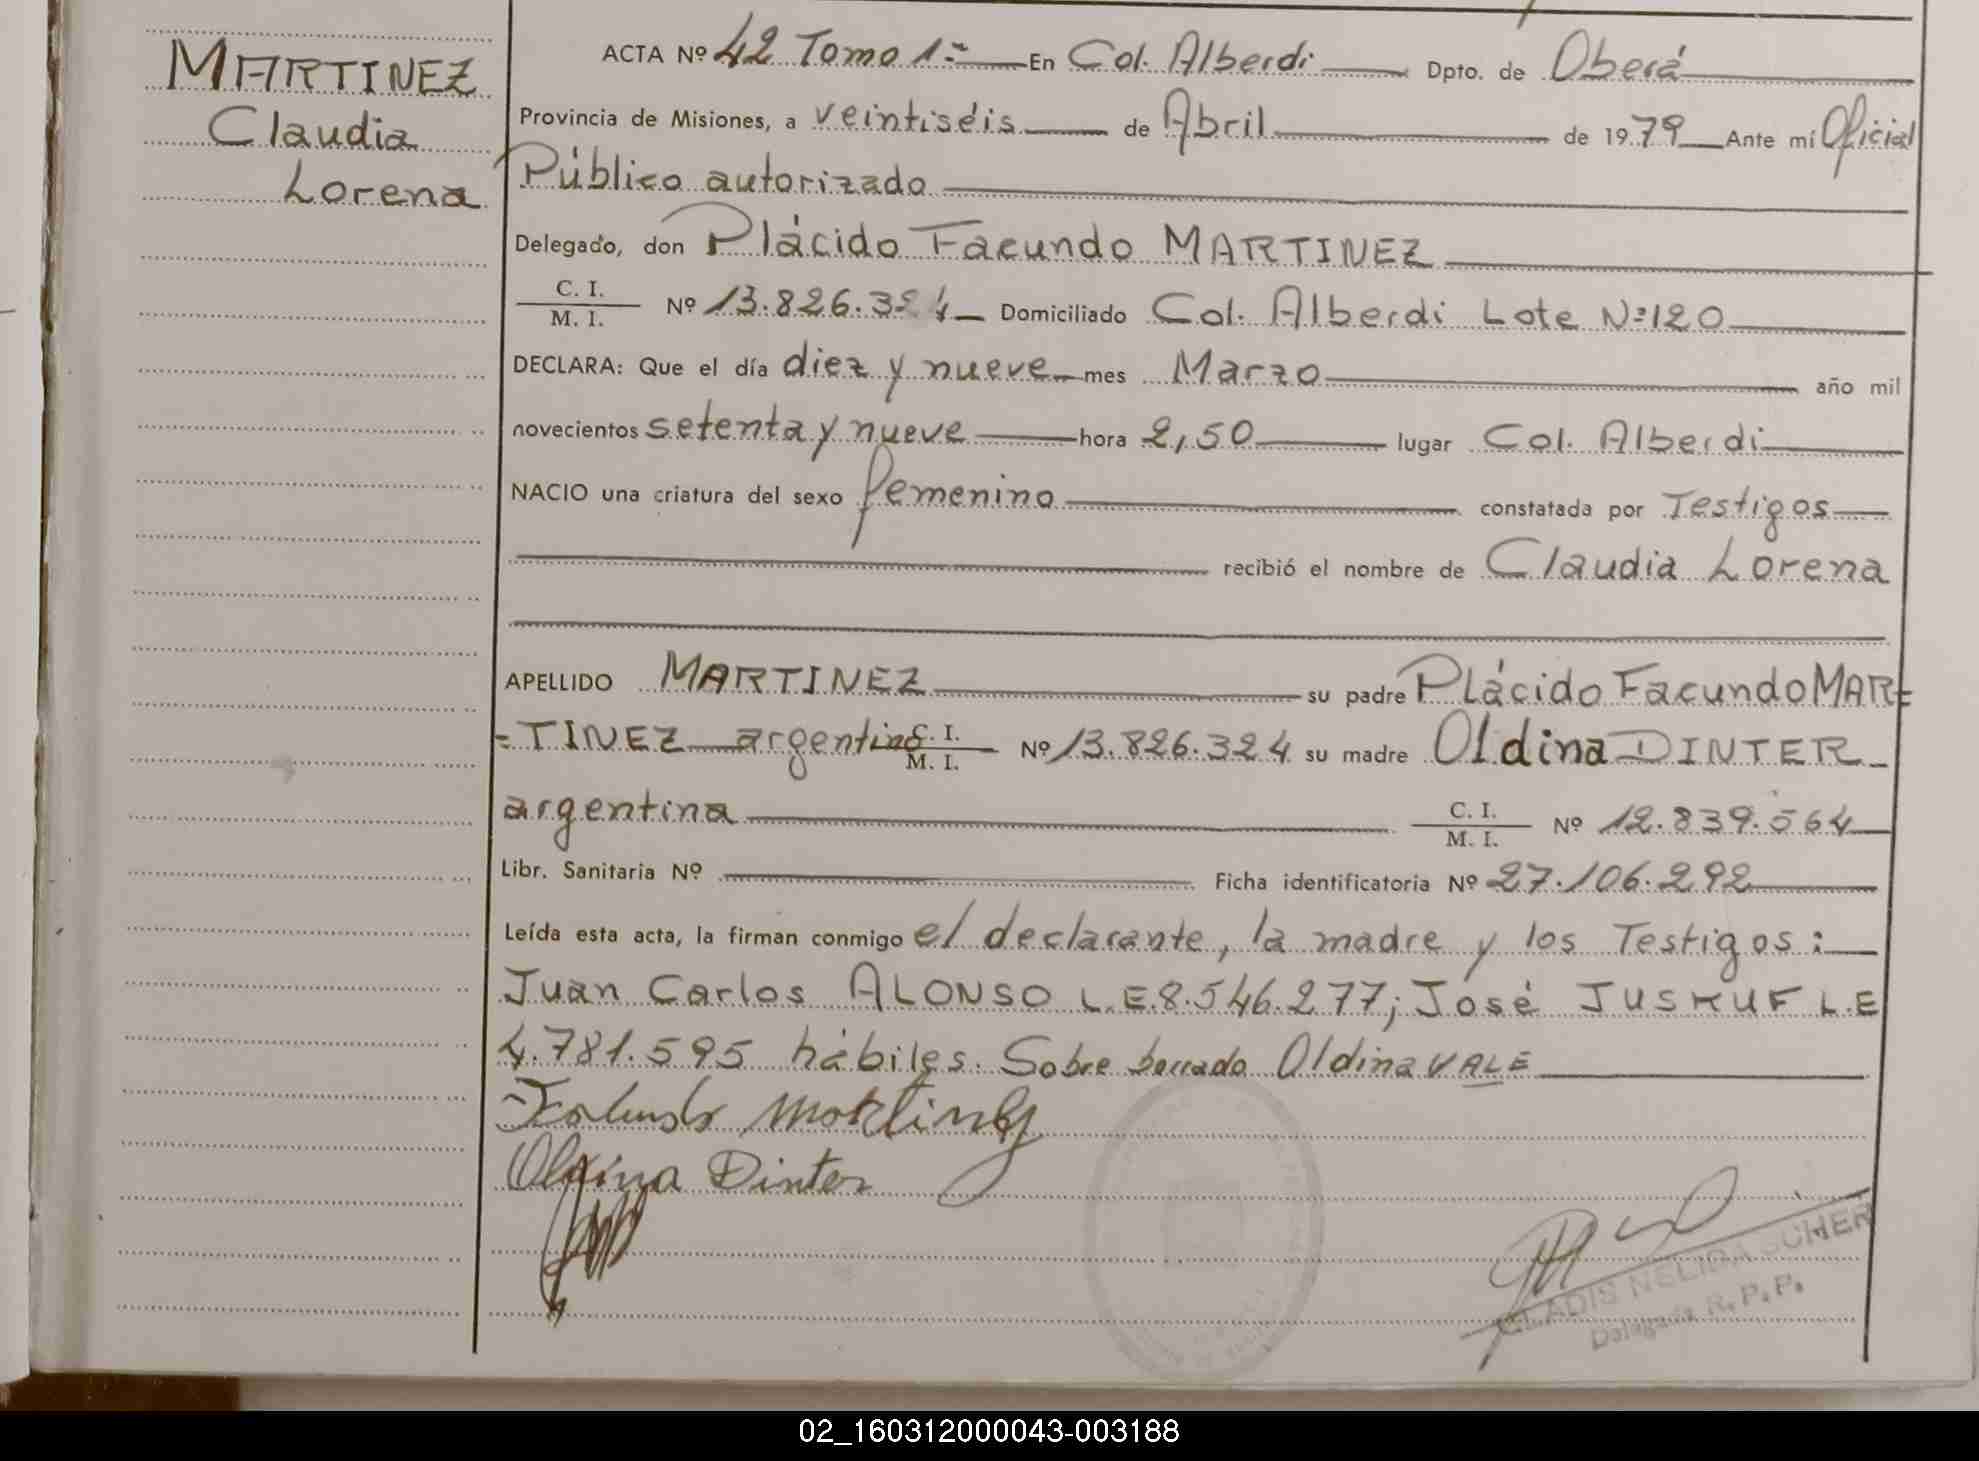 MARTINEZ
Claudia
Lorena
ACTA Nº 42 Tomo 1º En Col. Alberdi Dpto. de Oberá
Provincia de Misiones, a veintiséis de Abril de 1979 Ante mí Oficial
Público autorizado
Delegado, don Plácido Facundo MARTINEZ
C. I.
M. I. Nº 13.826.324 Domiciliado Col. Alberdi Lote Nº 120
DECLARA: Que el día diez y nueve mes Marzo año mil
novecientos setenta y nueve hora 2,50 lugar Col. Alberdi
NACIO una criatura del sexo femenino constatada por Testigos
recibió el nombre de Claudia Lorena
APELLIDO MARTINEZ su padre Plácido Facundo MAR=
=TINEZ argentino C. I. M. I. Nº 13.826.324 su madre Oldina DINTER
argentina C. I. M. I. Nº 12.839.564
Libr. Sanitaria Nº Ficha identificatoria Nº 27.106.292
Leída esta acta, la firman conmigo el declarante, la madre y los Testigos:
Juan Carlos ALONSO L.E 8.546.277; José JUSKUF L.E
4.781.595 hábiles. Sobre borrado Oldina VALE
Oldina Dinter
GLADIS NELIDA SCHER
Delegada R. P. P.
02_160312000043-003188